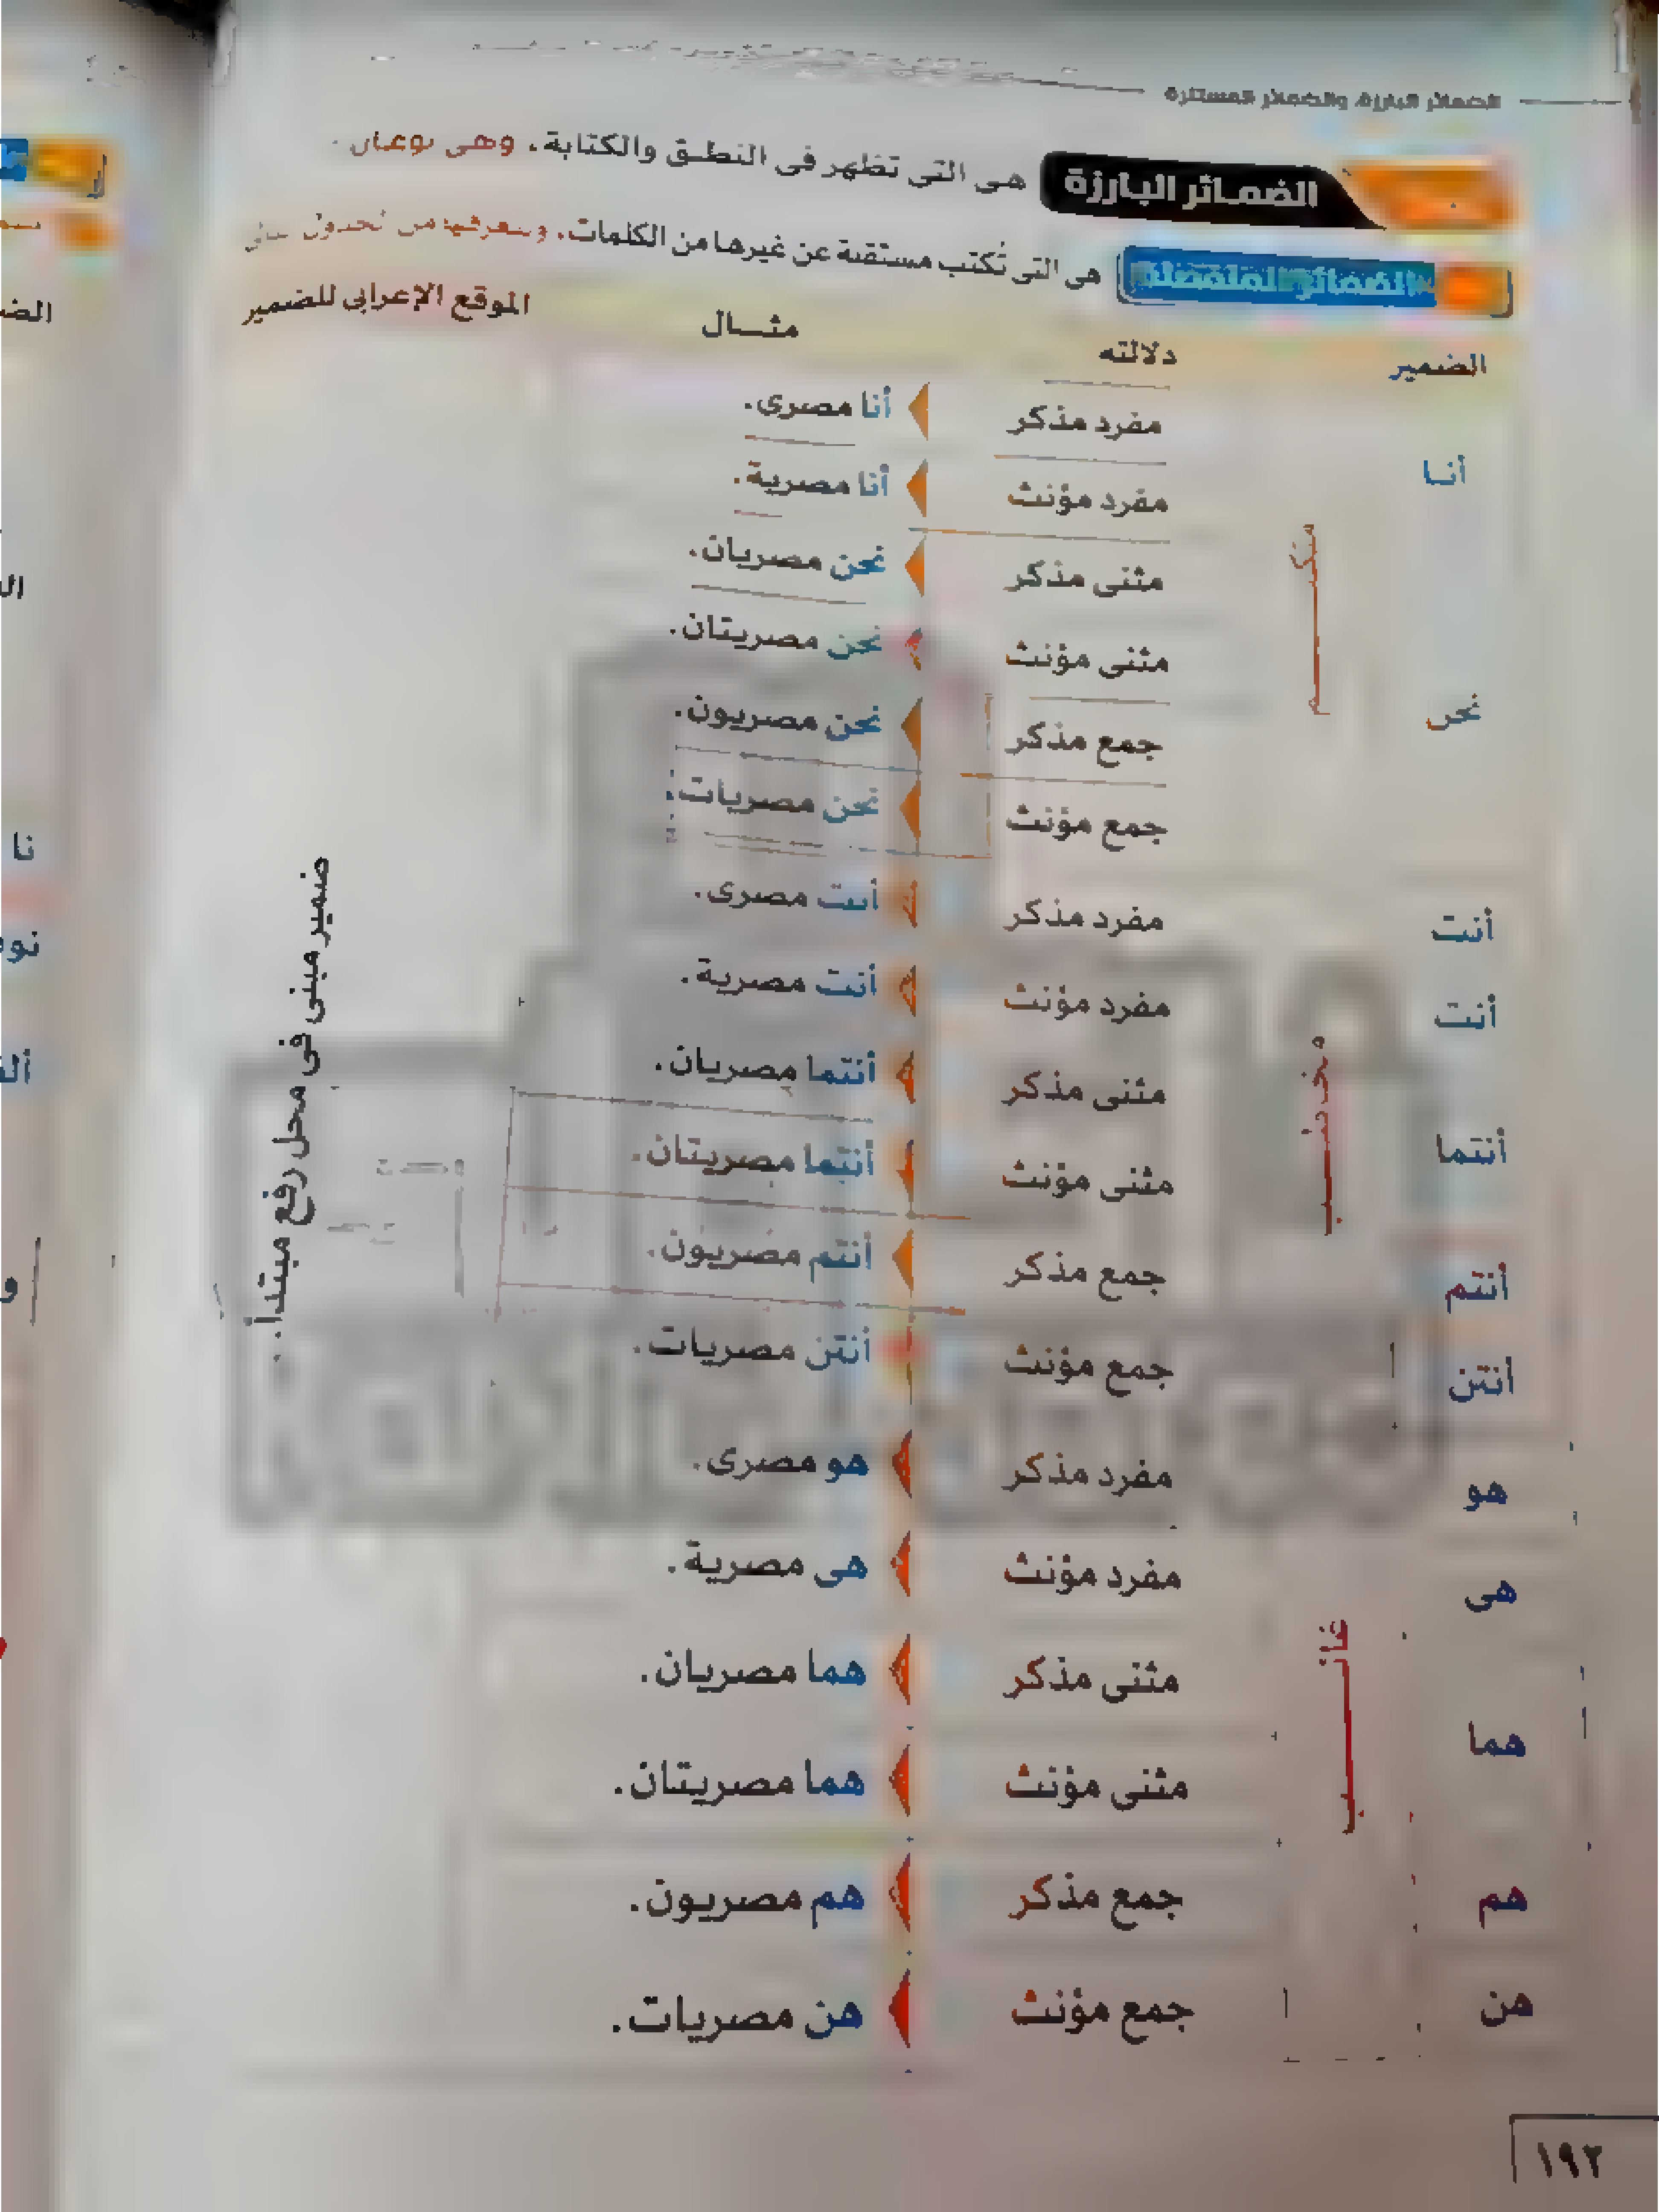 الضمائر البارزة، والضمائر المستترة
الضمائر البارزة هى التى تظهر فى النطق والكتابة، وهى نوعان
الضمائر المنفصلة هى التى تكتب مستقلة عن غيرها من الكلمات، من
الضمير دلالته مثال الموقع الإعرابى للضمير
أنا مفرد مذكر أنا مصرى.
مفرد مؤنث أنا مصرية.
متكلم
نحن مثنى مذكر نحن مصريان.
مثنى مؤنث نحن مصريتان.
جمع مذكر نحن مصريون.
جمع مؤنث نحن مصريات.
أنت مفرد مذكر أنت مصرى.
أنت مفرد مؤنث أنت مصرية.
مخاطب
أنتما مثنى مذكر أنتما مصريان.
مثنى مؤنث أنتما مصريتان.
أنتم جمع مذكر أنتم مصريون.
أنتن جمع مؤنث أنتن مصريات.
هو مفرد مذكر هو مصرى.
هى مفرد مؤنث هى مصرية.
غائب
هما مثنى مذكر هما مصريان.
مثنى مؤنث هما مصريتان.
هم جمع مذكر هم مصريون.
هن جمع مؤنث هن مصريات.
ضمير مبنى فى محل رفع مبتدأ.
١٩٢